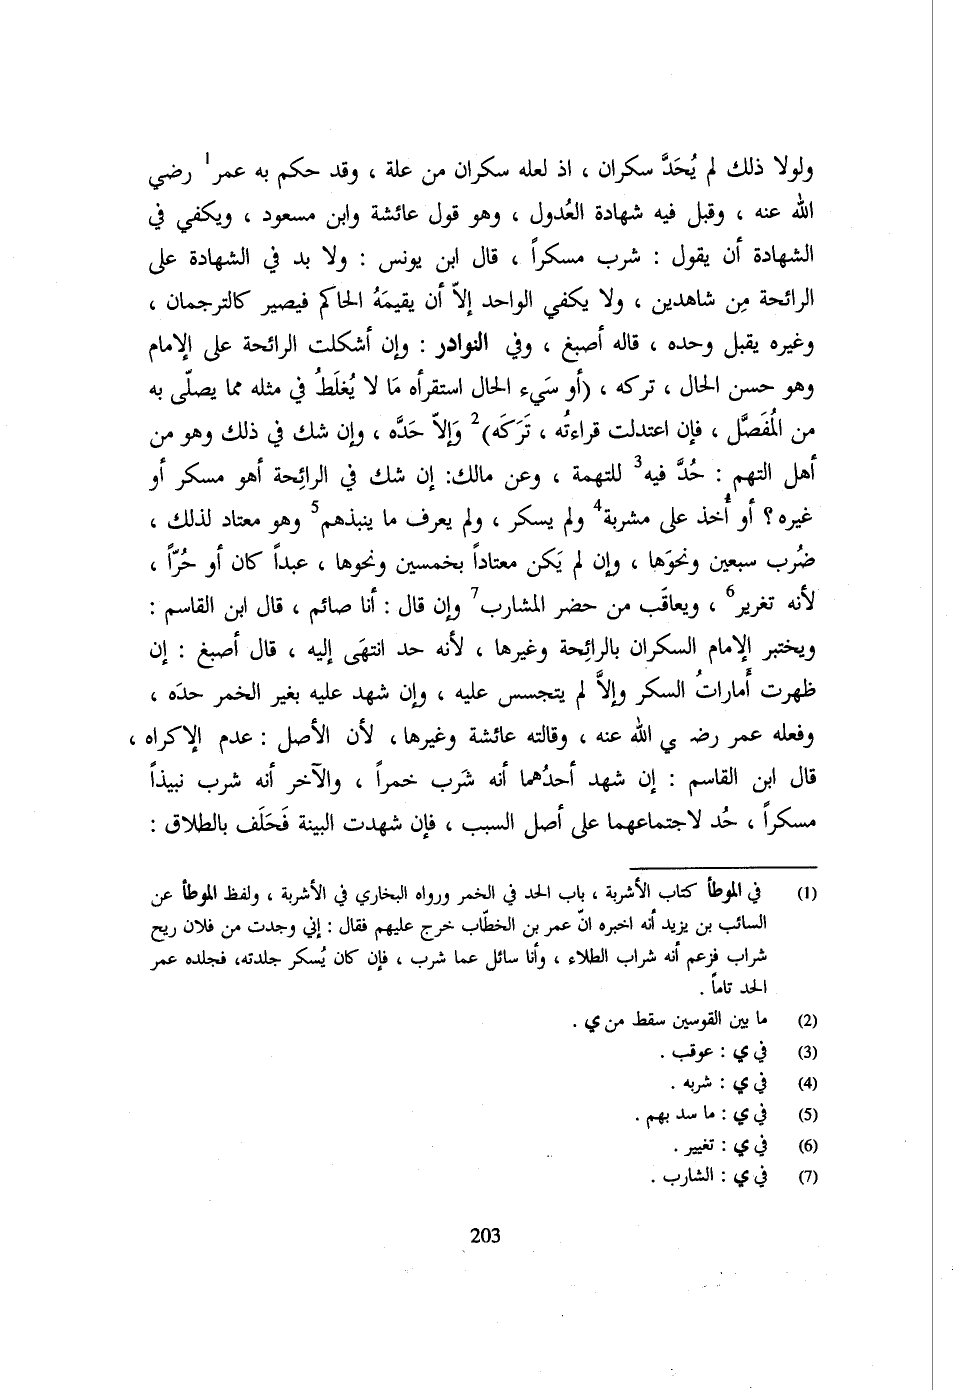 ولولا ذلك لم يُحَدَّ سكران ، اذ لعله سكران من علة ، وقد حكم به عمر1 رضي
الله عنه ، وقبل فيه شهادة العُدول ، وهو قول عائشة وابن مسعود ، ويكفي في
الشهادة أن يقول : شرب مسكراً ، قال ابن يونس : ولا بد في الشهادة على
الرائحة مِن شاهدين ، ولا يكفي الواحد إلاّ أن يقيمَهُ الحاكم فيصير كالترجمان ،
وغيره يقبل وحده ، قاله أصبغ ، وفي النوادر : وإن أشكلت الرائحة على الإمام
وهو حسن الحال ، تركه ، (أو سَيء الحال استقرأه مَا لا يُغلَطُ في مثله مما يصلّى به
من المُفَصَّل ، فإن اعتدلت قراءتُه ، تَرَكَه)2 وَإلاّ حَدَّه ، وإن شك في ذلك وهو من
أهل التهم : حُدَّ فيه3 للتهمة ، وعن مالك: إن شك في الرائِحة أهو مسكر أو
غيره ؟ أو أُخذ على مشربة4 ولم يسكر ، ولم يعرف ما ينبذهم5 وهو معتاد لذلك ،
ضُرب سبعين ونحوَها ، وإن لم يَكن معتاداً بخمسين ونحوها ، عبداً كان أو حُرّاً ،
لأنه تغرير6 ، ويعاقَب من حضر المشارب7 وإن قال : أنا صائم ، قال ابن القاسم :
ويختبر الإمام السكران بالرائِحة وغيرها ، لأنه حد انتهَى إليه ، قال أصبغ : إن
ظهرت أَماراتُ السكر وإلاَّ لم يتجسس عليه ، وإن شهد عليه بغير الخمر حدَه ،
وفعله عمر رضـ ي الله عنه ، وقالته عائشة وغيرها، لأن الأصل : عدم الإكراه ،
قال ابن القاسم : إن شهد أحدُهما أنه شَرب خمراً ، والآخر أنه شرب نبيذاً
مسكراً ، حُد لاجتماعهما على أصل السبب ، فإن شهدت البينة فَحَلَف بالطلاق :
(1) في الموطأ كتاب الأشربة ، باب الحد في الخمر ورواه البخاري في الأشربة ، ولفظ الموطأ عن
السائب بن يزيد أنه اخبره انّ عمر بن الخطّاب خرج عليهم فقال : إني وجدت من فلان ريح
شراب فزعم أنه شراب الطلاء ، وأنا سائل عما شرب ، فإن كان يُسكر جلدته، فجلده عمر
الحد تاماً .
(2) ما بين القوسين سقط من ي .
(3) في ي : عوقب .
(4) في ي : شربه .
(5) في ي : ما سد بهم .
(6) في ي : تغيير .
(7) في ي : الشارب .
203